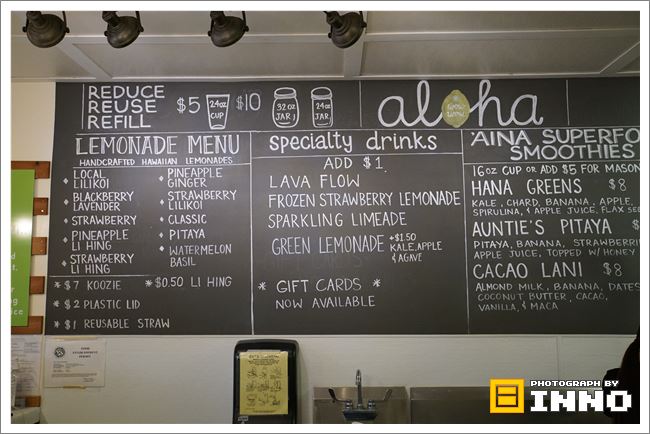 REDUCE
REUSE
REFILL
$5 24oz CUP
$10 32oz JAR 24oz JAR
aloha
LEMONADE MENU
HANDCRAFTED HAWAIIAN LEMONADES
LOCAL LILIKOI
BLACKBERRY LAVENDER
STRAWBERRY
PINEAPPLE LI HING
STRAWBERRY LI HING
PINEAPPLE GINGER
STRAWBERRY LILIKOI
CLASSIC
PITAYA
WATERMELON BASIL
* $7 KOOZIE
* $0.50 LI HING
* $2 PLASTIC LID
* $1 REUSABLE STRAW
specialty drinks
ADD $1
LAVA FLOW
FROZEN STRAWBERRY LEMONADE
SPARKLING LIMEADE
GREEN LEMONADE +$1.50
KALE, APPLE
& AGAVE
* GIFT CARDS *
NOW AVAILABLE
'AINA SUPERFO
SMOOTHIES
16oz CUP OR ADD $5 FOR MASON
HANA GREENS $8
KALE, CHARD, BANANA, APPLE,
SPIRULINA, & APPLE JUICE, FLAX SEE
AUNTIE'S PITAYA $
PITAYA, BANANA, STRAWBERRI
APPLE JUICE, TOPPED W/ HONEY
CACAO LANI $8
ALMOND MILK, BANANA, DATES
COCONUT BUTTER, CACAO,
VANILLA, & MACA
PHOTOGRAPH BY
INNO